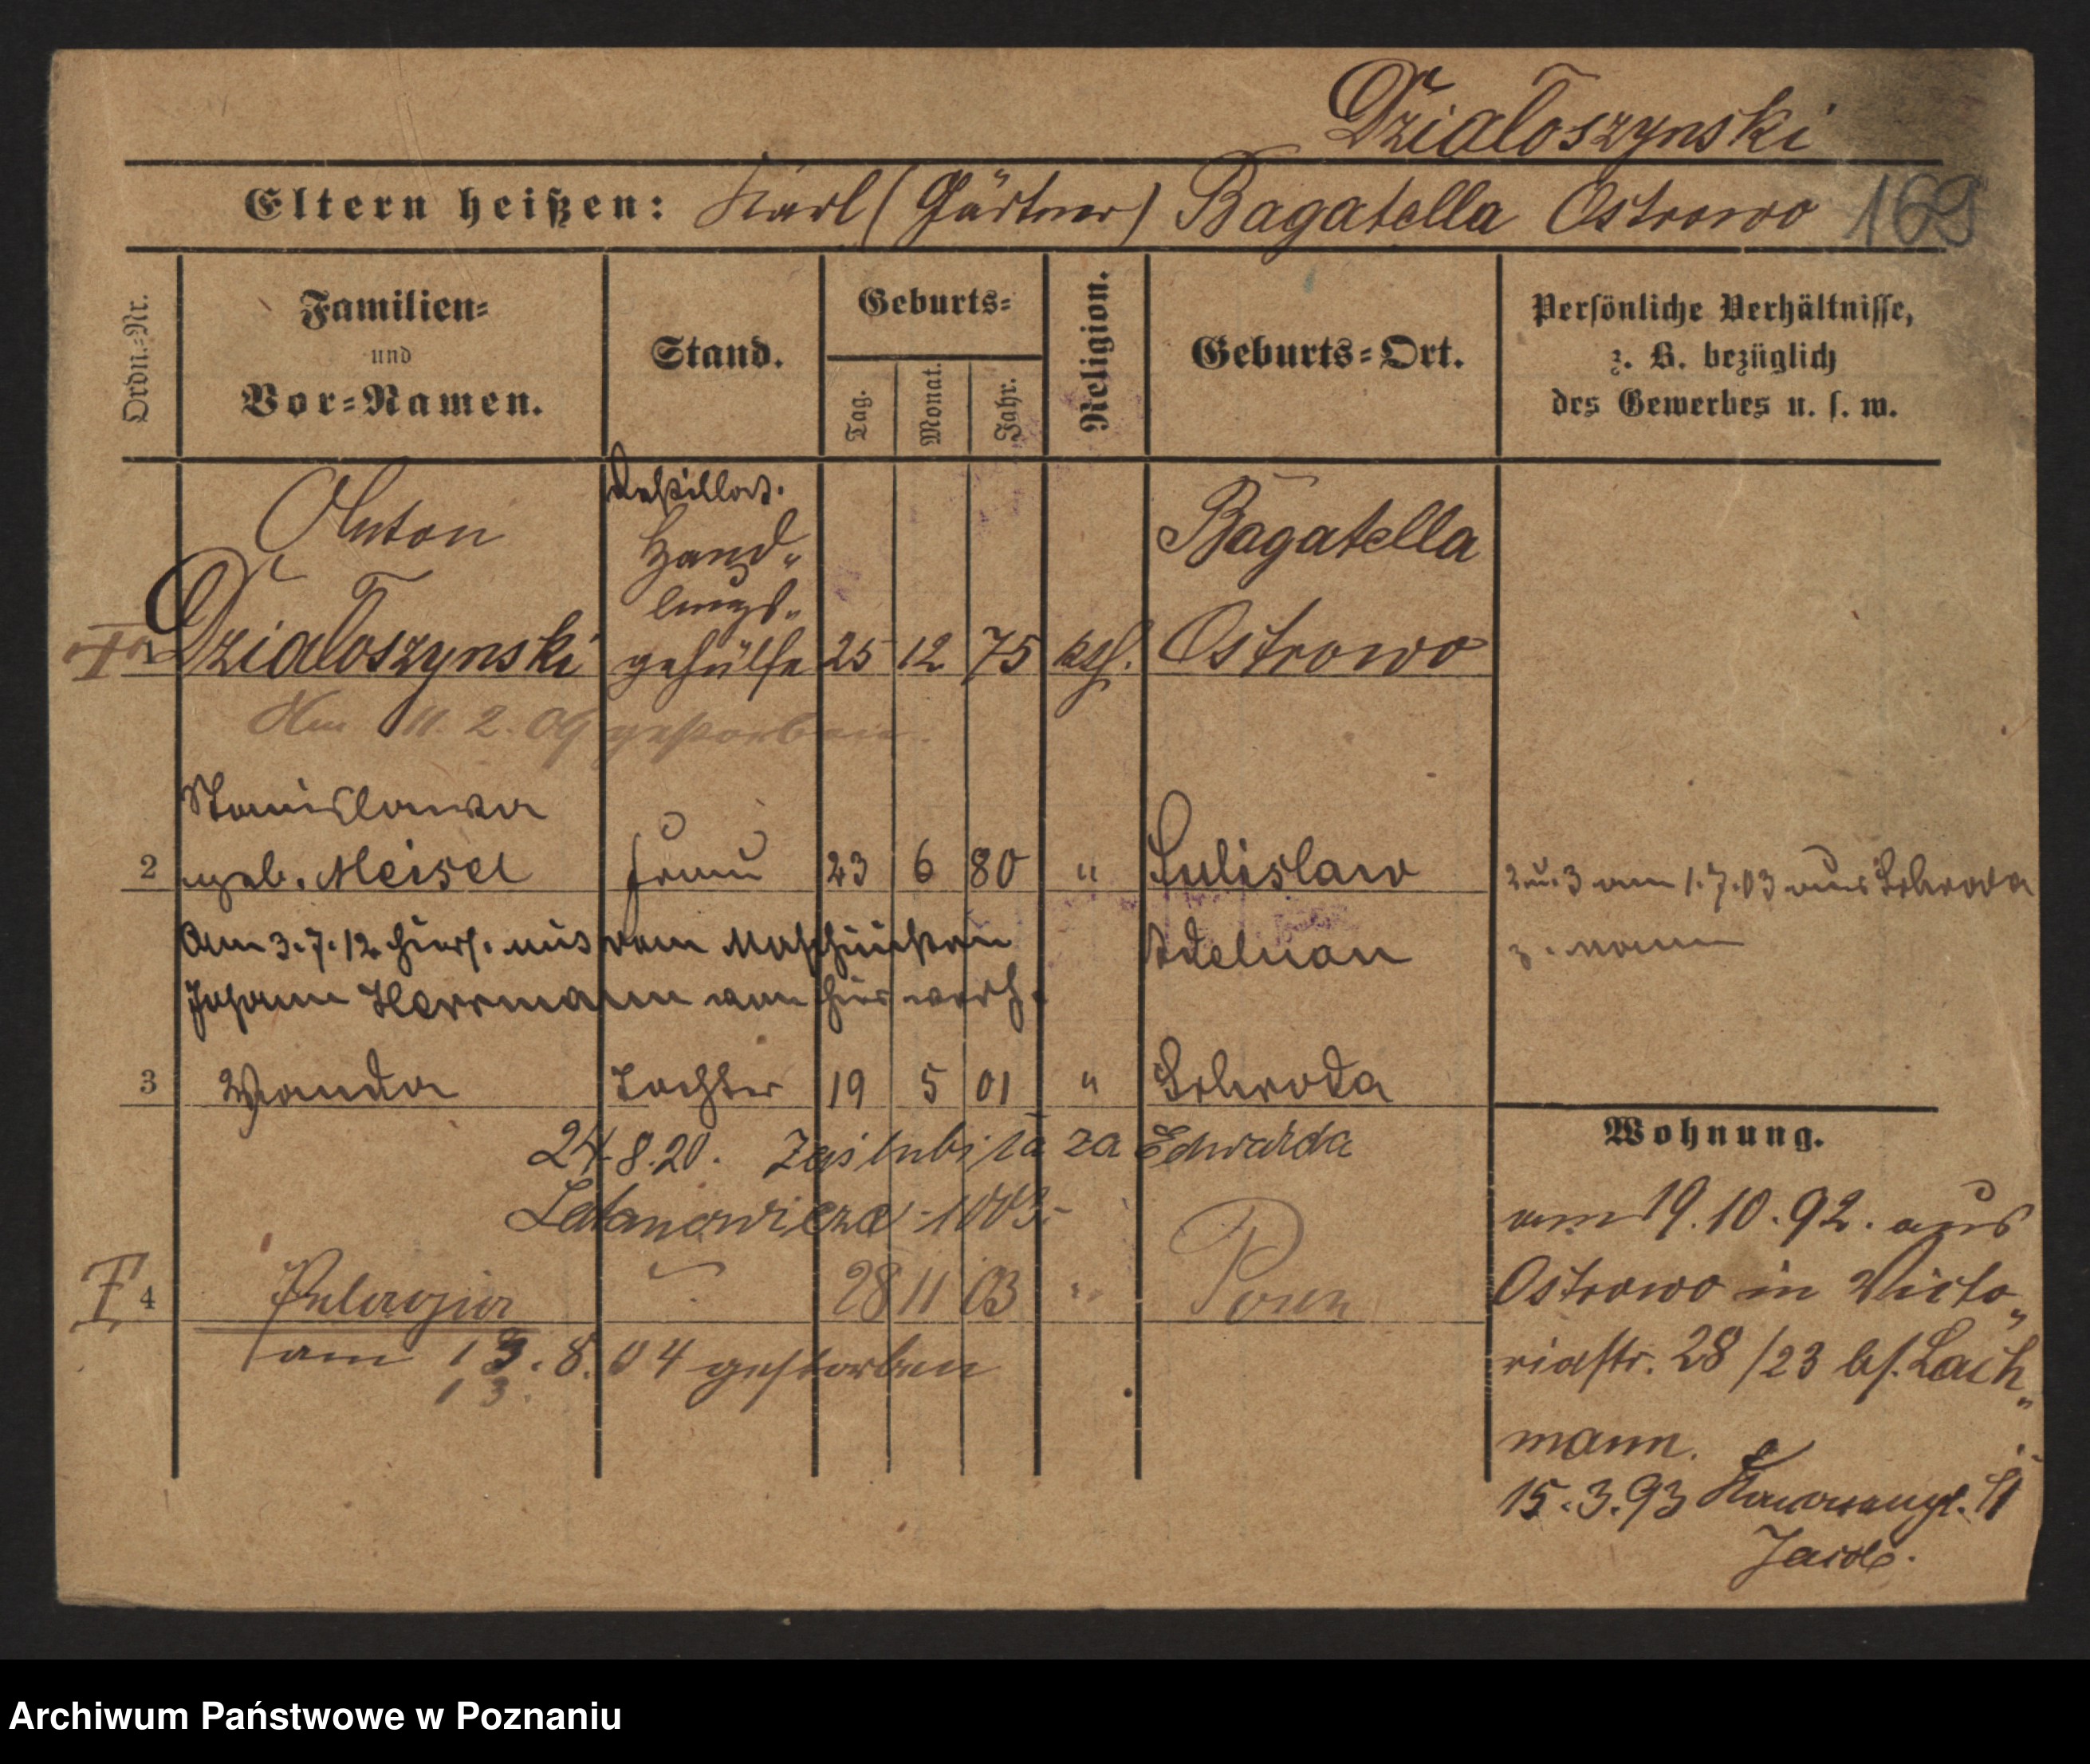 Działoszynski
Eltern heißen: Karl (Gärtner) Bagatella Ostrowo 169
Ordn.-Nr.
Familien-
und
Vor-Namen.
Stand.
Geburts-
Tag.
Monat.
Jahr.
Religion.
Geburts-Ort.
Persönliche Verhältnisse,
z. B. bezüglich
des Gewerbes u. s. w.
Anton
Destillat.
Hand-
lungs-
Bagatella
1 Działoszynski gehülfe 25 12 75 kth. Ostrowo
Am 11. 2. 09 gestorben.
Stanislawa
2 geb. Meisel Frau 23 6 80 " Sulislaw
2 u. 3 am 1.7.03 aus Schroda
Am 3.7.12 hiers. mit dem Maschinisten
Adelnau
z. Mann
Johann Herrmann von hier verh.
3 Wanda Tochter 19 5 01 " Schroda
24.8.20. Zaślubiła za Edwarda
Latanowicza - 1003.-
4 Pelagia " 28 11 03 " Posen
am 13. 8. 04 gestorben
13.
Wohnung.
am 19.10.92. aus
Ostrowo in Victo-
riastr. 28/23 bs. Lach-
mann.
15.3.93